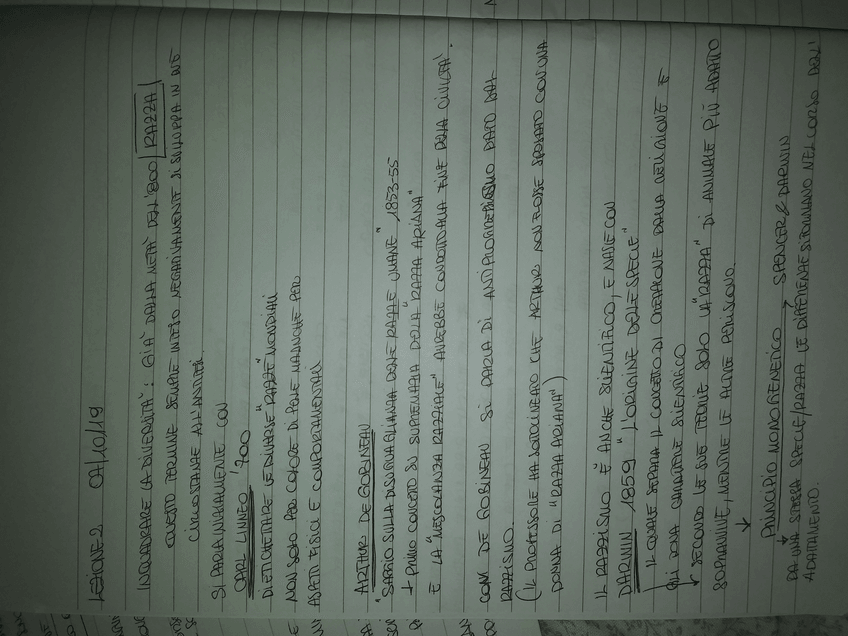 LEZIONE 2 07/10/19
INQUADRARE LA DIVERSITÀ: GIÀ DALLA METÀ DELL'800 RAZZA
QUESTO TERMINE SEMPRE INTESO NEGATIVAMENTE SI SVILUPPA IN DUE
CIRCOSTANZE ALL'ANTITESI.
SI PARLA INIZIALMENTE CON
CARL LINNEO '700
DI ETICHETTARE LE DIVERSE "RAZZE" MONDIALI
NON SOLO PER COLORE DI PELLE MA ANCHE PER
ASPETTI FISICI E COMPORTAMENTALI
ARTHUR DE GOBINEAU
"SAGGIO SULLA DISUGUAGLIANZA DELLE RAZZE UMANE" 1853-55
↓ PRIMO CONCETTO SU SUPREMAZIA DELLA "RAZZA ARIANA"
E LA "MESCOLANZA RAZZIALE" AVREBBE CONDOTTO ALLA FINE DELLA CIVILTÀ.
CON DE GOBINEAU SI PARLA DI DATO DAL
RAZZISMO.
(IL PROFESSORE HA SOTTOLINEATO CHE ARTHUR NON FOSSE SPOSATO CON UNA
DONNA DI "RAZZA ARIANA")
IL RAZZISMO È ANCHE SCIENTIFICO, E NASCE CON
DARWIN 1859 "L'ORIGINE DELLE SPECIE"
IL QUALE SEPARA IL CONCETTO DI DALLA RELIGIONE E
GLI DONA CARATTERE SCIENTIFICO
↓ SECONDO LE SUE TEORIE SOLO LA "RAZZA" DI ANIMALE PIÙ ADATTO
SOPRAVVIVE, MENTRE LE ALTRE PERISCONO.
↓
PRINCIPIO MONOGENETICO → SPENCER & DARWIN
↓
DA UNA STESSA SPECIE/RAZZA LE DIFFERENZE SI FORMANO NEL CORSO DELL'
ADATTAMENTO.